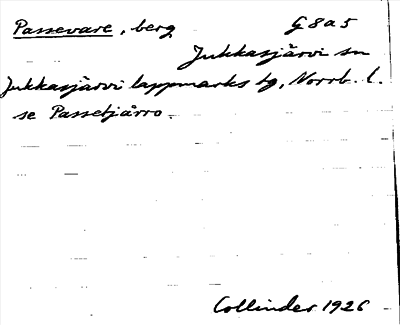 Passevare, berg G8a5
Jukkasjärvi sn
Jukkasjärvi lappmarks tg, Norrb. l.
se Passetjårro.
Collinder 1926